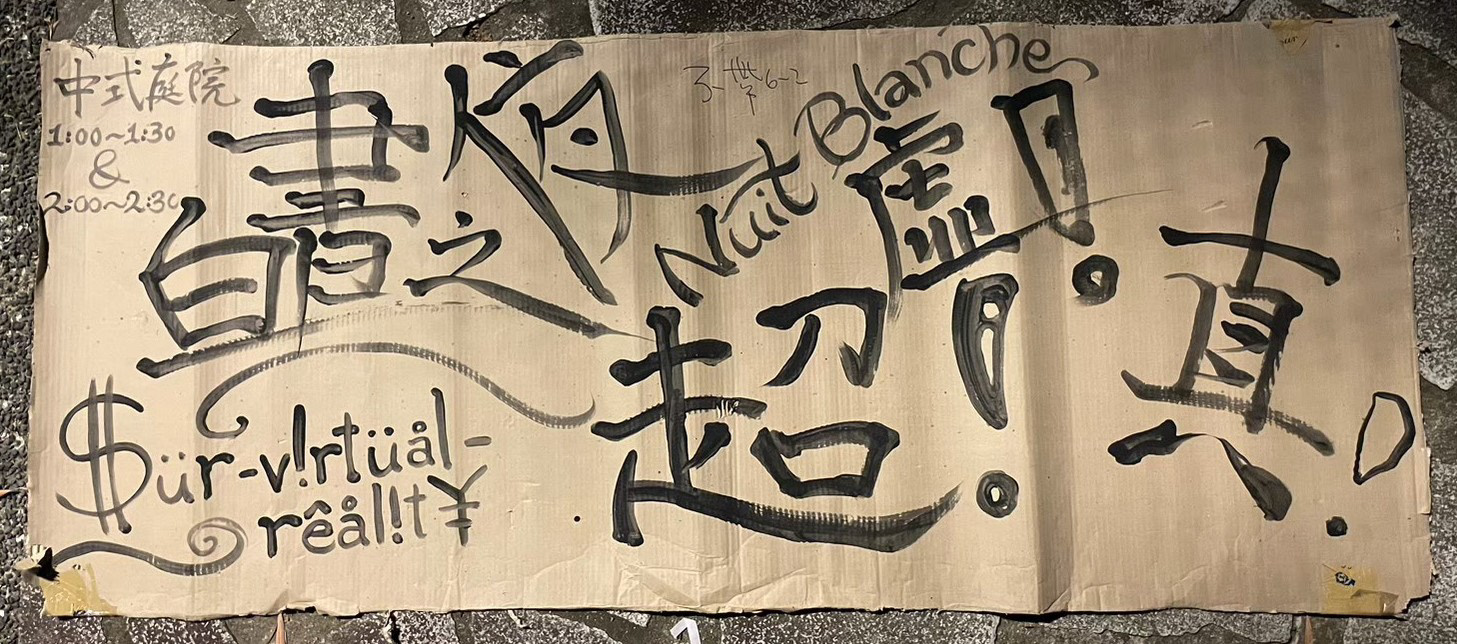 中式庭院
1:00~1:30
&
2:00~2:30
白晝之夜
Nuit Blanche
超!虛!真!
$ür-v!rtüål-
rêål!t¥